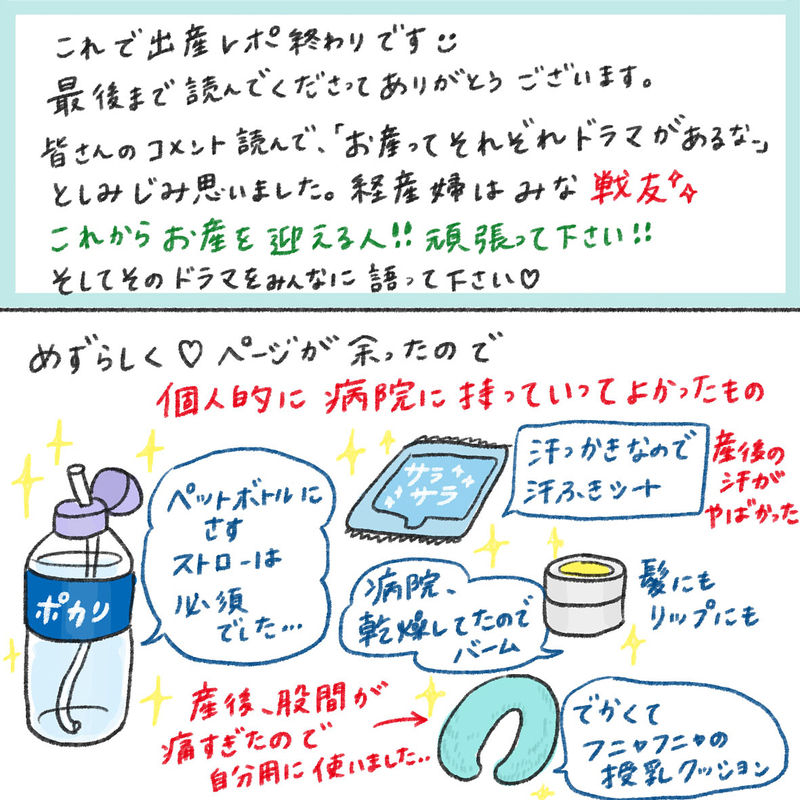 これで出産レポ終わりです
最後まで読んでくださってありがとうございます。
皆さんのコメント読んで、「お産ってそれぞれドラマがあるなー」
としみじみ思いました。経産婦はみな戦友
これからお産を迎える人!!頑張って下さい!!
そしてそのドラマをみんなに語って下さい♡
めずらしく♡ページが余ったので
個人的に病院に持っていってよかったもの
ポカリ
ペットボトルに
さす
ストローは
必須
でした…
サラ
サラ
汗っかきなので
汗ふきシート
産後の
汗が
やばかった
病院、
乾燥してたので
バーム
髪にも
リップにも
産後、股間が
痛すぎたので
自分用に使いました..
でかくて
フニャフニャの
授乳クッション